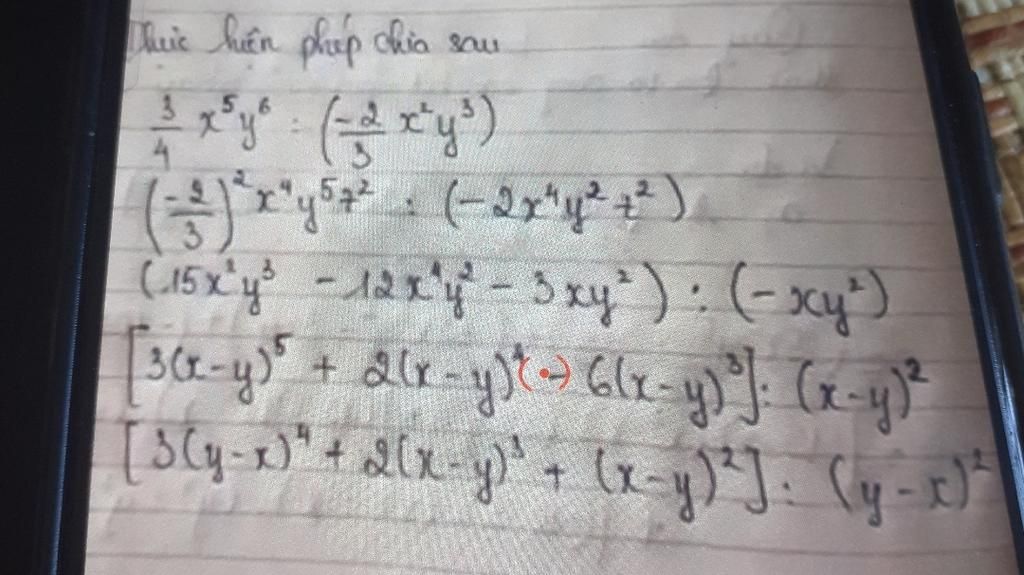 Thực hiện phép chia sau
3/4 x⁵y⁶ : (-2/3 x²y³)
(-2/3)² x⁴y⁵z² : (-2x⁴y²z²)
(15x²y³ - 12x⁴y² - 3xy²) : (-xy²)
[3(x-y)⁵ + 2(x-y)⁴ (-) 6(x-y)³] : (x-y)²
[3(y-x)⁴ + 2(x-y)³ + (x-y)²] : (y-x)²